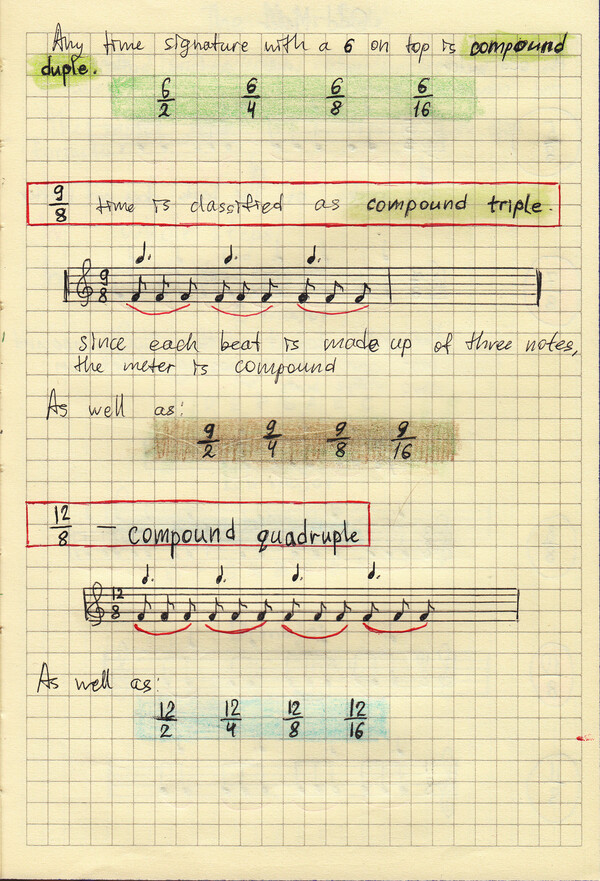 Any time signature with a 6 on top is compound
duple.
6/2 6/4 6/8 6/16
9/8 time is classified as compound triple.
9/8
since each beat is made up of three notes,
the meter is compound
As well as:
9/2 9/4 9/8 9/16
12/8 — compound quadruple
12/8
As well as:
12/2 12/4 12/8 12/16